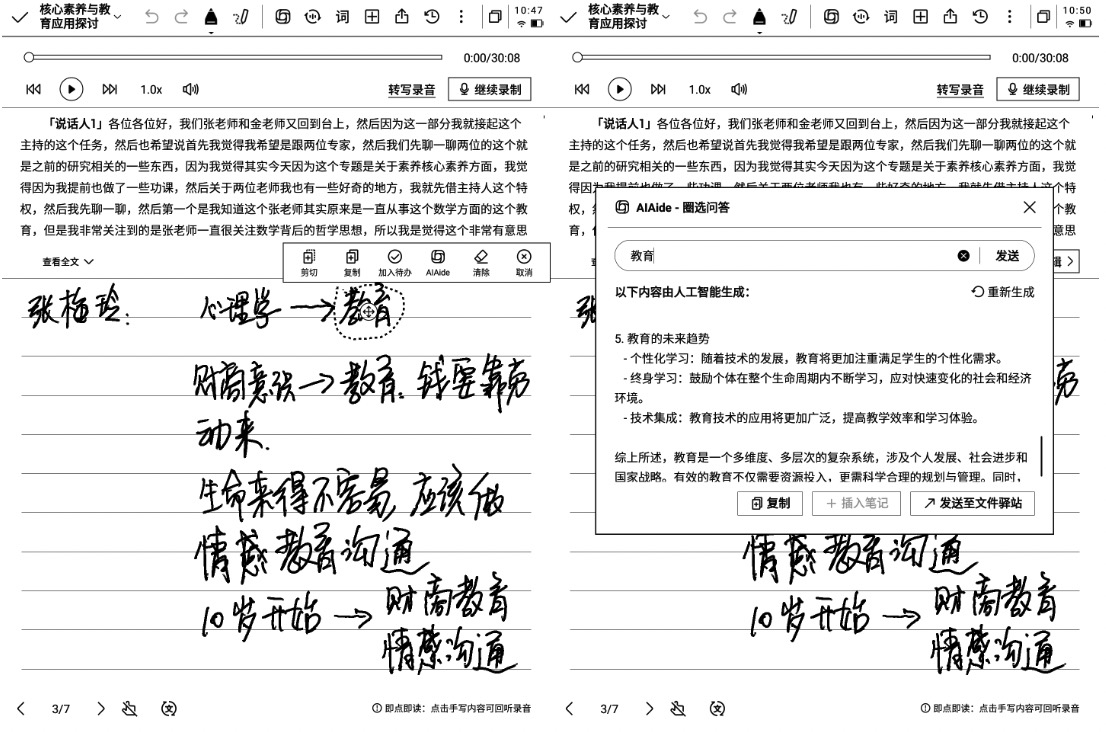 核心素养与教
育应用探讨
词
10:47
0:00/30:08
1.0x
转写录音
继续录制
「说话人1」各位各位好，我们张老师和金老师又回到台上，然后因为这一部分我就接起这个
主持的这个任务，然后也希望说首先我觉得我希望是跟两位专家，然后我们先聊一聊两位的这个就
是之前的研究相关的一些东西，因为我觉得其实今天因为这个专题是关于素养核心素养方面，我觉
得因为我提前也做了一些功课，然后关于两位老师我也有一些好奇的地方，我就先借主持人这个特
权，然后我先聊一聊，然后第一个是我知道这个张老师其实原来是一直从事这个数学方面的这个教
育，但是我非常关注到的是张老师一直很关注数学背后的哲学思想，所以我是觉得这个非常有意思
查看全文
剪切
复制
加入待办
AIAide
清除
取消
张梅玲：
心理学→教育
财商意识→教育。钱要靠劳
动来.
生命来得不容易，应该做
情感教育沟通
10岁开始→财商教育
情感沟通
3/7
即点即读：点击手写内容可回听录音
核心素养与教
育应用探讨
词
10:50
0:00/30:08
1.0x
转写录音
继续录制
「说话人1」各位各位好，我们张老师和金老师又回到台上，然后因为这一部分我就接起这个
主持的这个任务，然后也希望说首先我觉得我希望是跟两位专家，然后我们先聊一聊两位的这个就
是之前的研究相关的一些东西，因为我觉得其实今天因为这个专题是关于素养核心素养方面，我觉
得因为我提前也做了一些功课，然后关于两位老师我也有一些好奇的地方，我就先借主持人这个特
权，
个教
育，
意思
AIAide - 圈选问答
教育
发送
以下内容由人工智能生成：
重新生成
5. 教育的未来趋势
- 个性化学习：随着技术的发展，教育将更加注重满足学生的个性化需求。
- 终身学习：鼓励个体在整个生命周期内不断学习，应对快速变化的社会和经济
环境。
- 技术集成：教育技术的应用将更加广泛，提高教学效率和学习体验。
综上所述，教育是一个多维度、多层次的复杂系统，涉及个人发展、社会进步和
国家战略。有效的教育不仅需要资源投入，更需科学合理的规划与管理。同时，
复制
插入笔记
发送至文件驿站
张
劳
情感教育沟通
10岁开始→财商教育
情感沟通
3/7
即点即读：点击手写内容可回听录音